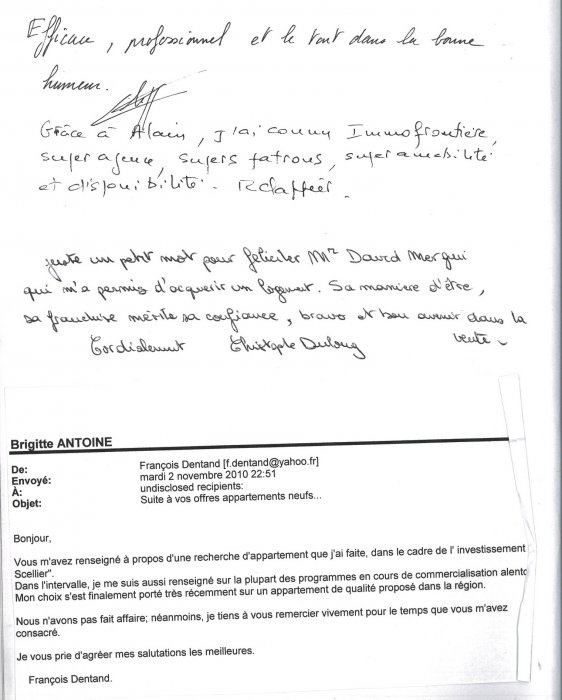 Efficace, professionnel et le tout dans la bonne
humeur.
Grâce à Alain, j'ai connu Immofrontière,
super agence, supers patrons, super amabilité
et disponibilité.
juste un petit mot pour féliciter Mr David Mergui
qui m'a permis d'acquerir un logement. Sa maniere d'être,
sa franchise mérite sa confiance, bravo et bon avenir dans la
vente.
Cordialement Christophe
Brigitte ANTOINE
De: François Dentand [f.dentand@yahoo.fr]
Envoyé: mardi 2 novembre 2010 22:51
À: undisclosed recipients:
Objet: Suite à vos offres appartements neufs...
Bonjour,
Vous m'avez renseigné à propos d'une recherche d'appartement que j'ai faite, dans le cadre de l' investissement
Scellier".
Dans l'intervalle, je me suis aussi renseigné sur la plupart des programmes en cours de commercialisation alento
Mon choix s'est finalement porté très récemment sur un appartement de qualité proposé dans la région.
Nous n'avons pas fait affaire; néanmoins, je tiens à vous remercier vivement pour le temps que vous m'avez
consacré.
Je vous prie d'agréer mes salutations les meilleures.
François Dentand.